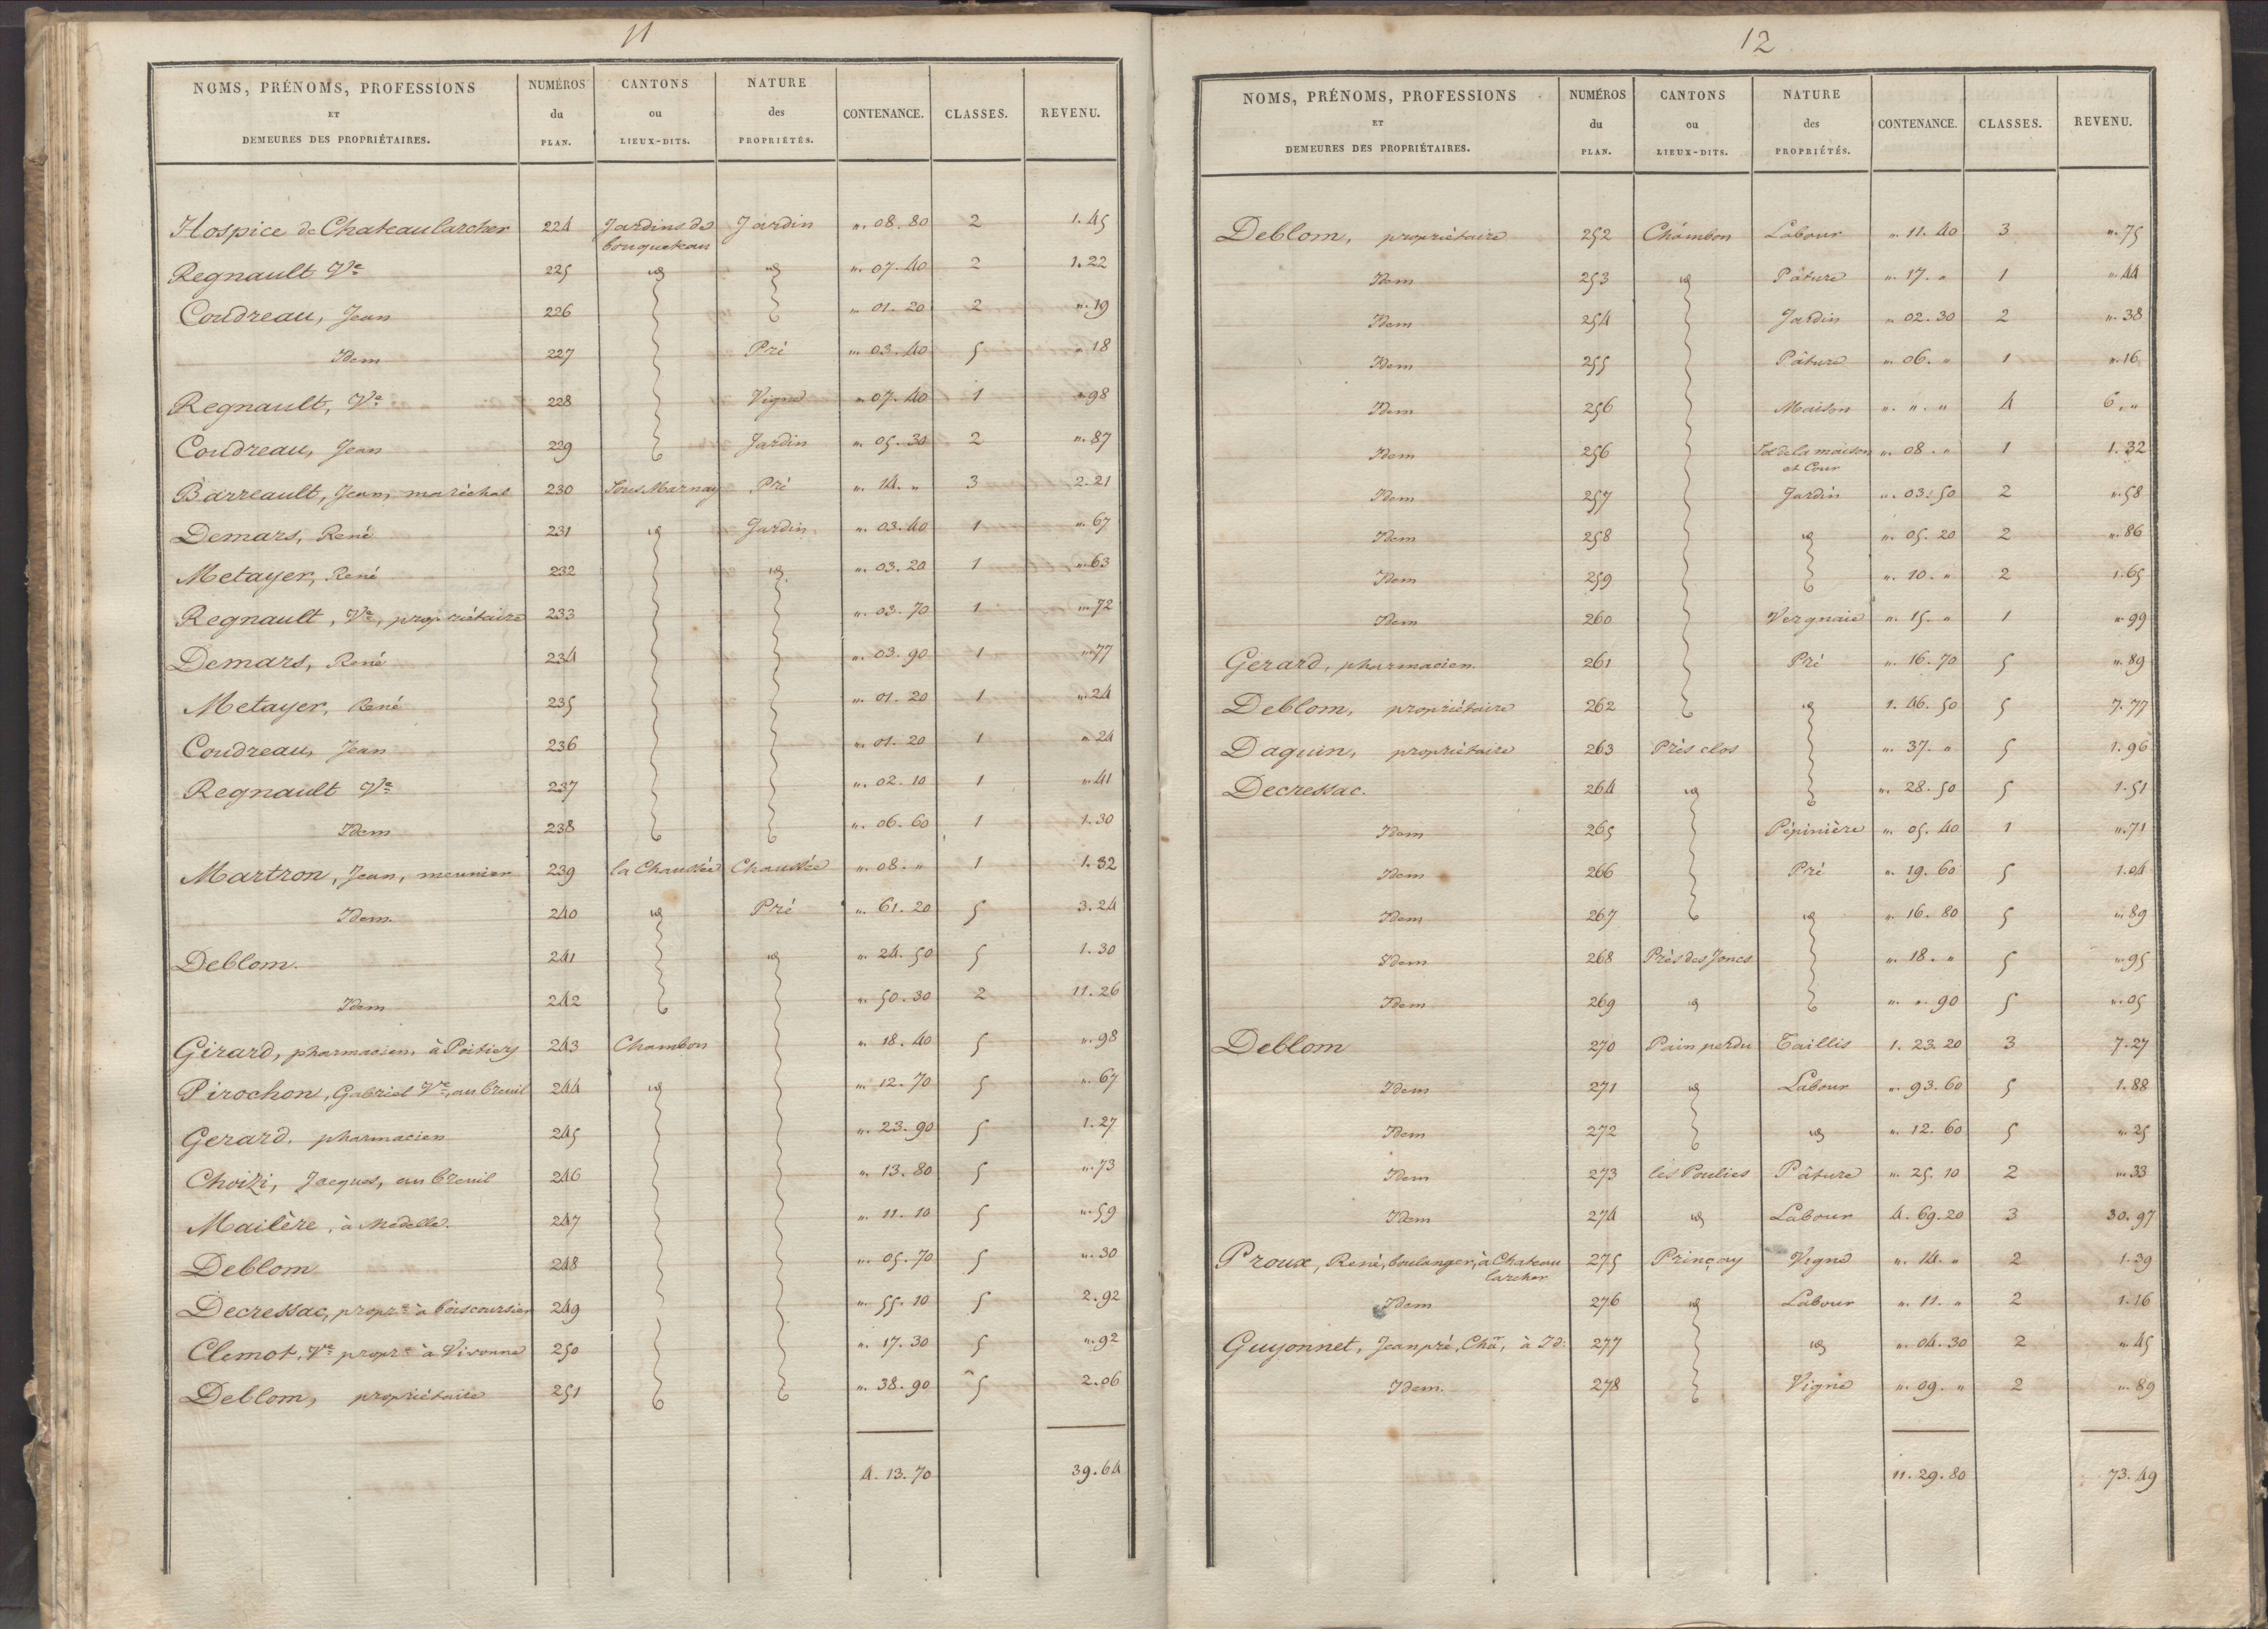 11
NOMS, PRÉNOMS, PROFESSIONS ET DEMEURES DES PROPRIÉTAIRES. NUMÉROS du PLAN. CANTONS ou LIEUX-DITS. NATURE des PROPRIÉTÉS. CONTENANCE. CLASSES. REVENU.
Hospice de Chateaularcher 224 Jardins de bouqueteau Jardin ". 08. 80 2 1. 45
Regnault Ve 225 id id ". 07. 40 2 1. 22
Coudreau, Jean 226 ". 01. 20 2 ". 19
Idem 227 Pré ". 03. 40 5 ". 18
Regnault, Ve 228 Vigne ". 07. 40 1 ". 98
Coudreau, Jean 229 Jardin ". 05. 30 2 ". 87
Barreault, Jean, maréchal 230 Sous Marnay Pré ". 14. " 3 2. 21
Demars, René 231 id Jardin ". 03. 40 1 ". 67
Metayer, René 232 id ". 03. 20 1 ". 63
Regnault, Ve, propriétaire 233 ". 03. 70 1 ". 72
Demars, René 234 ". 03. 90 1 ". 77
Metayer, René 235 ". 01. 20 1 ". 24
Coudreau, Jean 236 ". 01. 20 1 ". 24
Regnault Ve 237 ". 02. 10 1 ". 41
Idem 238 ". 06. 60 1 1. 30
Martron, Jean, meunier 239 la Chaussée Chaussée ". 08. " 1 1. 32
Idem. 240 id Pré ". 61. 20 5 3. 24
Deblom. 241 id ". 24. 50 5 1. 30
Idem 242 ". 50. 30 2 11. 26
Girard, pharmacien, à Poitiers 243 Chambon ". 18. 40 5 ". 98
Pirochon, Gabriel Ve, au breuil 244 id ". 12. 70 5 ". 67
Gerard, pharmacien 245 ". 23. 90 5 1. 27
Choizi, Jacques, au breuil 246 ". 13. 80 5 ". 73
Mailère, à Medelle. 247 ". 11. 10 5 ". 59
Deblom 248 ". 05. 70 5 ". 30
Decressac, propre à boiscoursier 249 ". 55. 10 5 2. 92
Clemot, Ve propre à Vivonne 250 ". 17. 30 5 ". 92
Deblom, propriétaire 251 ". 38. 90 5 2. 06
4. 13. 70 39. 64
12
NOMS, PRÉNOMS, PROFESSIONS ET DEMEURES DES PROPRIÉTAIRES. NUMÉROS du PLAN. CANTONS ou LIEUX-DITS. NATURE des PROPRIÉTÉS. CONTENANCE. CLASSES. REVENU.
Deblom, propriétaire 252 Chambon Labour ". 11. 40 3 ". 75
Idem 253 id Pâture ". 17. " 1 ". 44
Idem 254 Jardin ". 02. 30 2 ". 38
Idem 255 Pâture ". 06. " 1 ". 16
Idem 256 Maison ". ". " 4 6. "
Idem 256 Sol de la maison et Cour ". 08. " 1 1. 32
Idem 257 Jardin ". 03. 50 2 ". 58
Idem 258 id ". 05. 20 2 ". 86
Idem 259 ". 10. " 2 1. 65
Idem 260 Vergnaie ". 15. " 1 ". 99
Gerard, pharmacien. 261 Pré ". 16. 70 5 ". 89
Deblom, propriétaire 262 id 1. 46. 50 5 7. 77
Daquin, propriétaire 263 Près clos ". 37. " 5 1. 96
Decressac. 264 id ". 28. 50 5 1. 51
Idem 265 Pépinière ". 05. 40 1 ". 71
Idem 266 Pré ". 19. 60 5 1. 04
Idem 267 id ". 16. 80 5 ". 89
Idem 268 Près des Joncs ". 18. " 5 ". 95
Idem 269 id ". ". 90 5 ". 05
Deblom 270 Pain perdu Taillis 1. 23. 20 3 7. 27
Idem 271 id Labour ". 93. 60 5 1. 88
Idem 272 id ". 12. 60 5 ". 25
Idem 273 les Poulies Pâture ". 25. 10 2 ". 33
Idem 274 id Labour 4. 69. 20 3 30. 97
Proux, René, boulanger, à Chateau larcher 275 Prinçay Vigne ". 14. " 2 1. 39
Idem 276 id Labour ". 11. " 2 1. 16
Guyonnet, Jean pré, Chau, à Id. 277 id ". 04. 30 2 ". 45
Idem. 278 Vigne ". 09. " 2 ". 89
11. 29. 80 73. 49